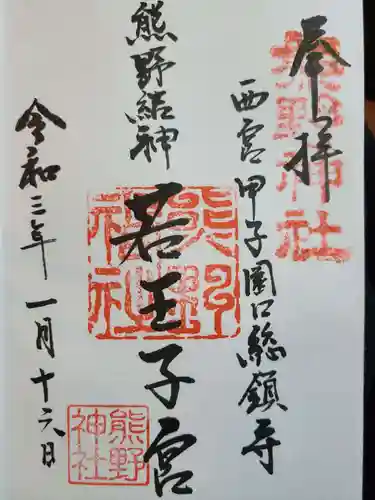 奉拝
熊野神社
西宮甲子園口総鎮守
熊野神社
若王子宮
熊野結神
熊野神社
令和三年一月十六日